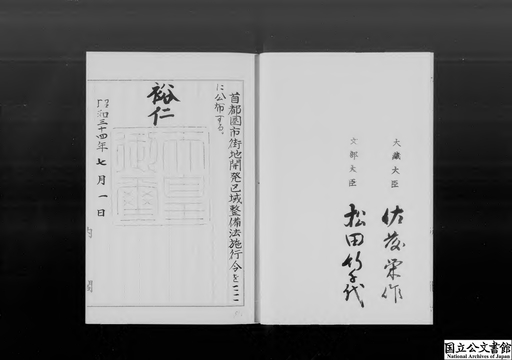 大蔵大臣 佐藤栄作
文部大臣 松田竹千代
首都圏市街地開発区域整備法施行令をここ
に公布する。
裕仁
天皇御璽
昭和三十四年七月一日
内閣
国立公文書館
National Archives of Japan